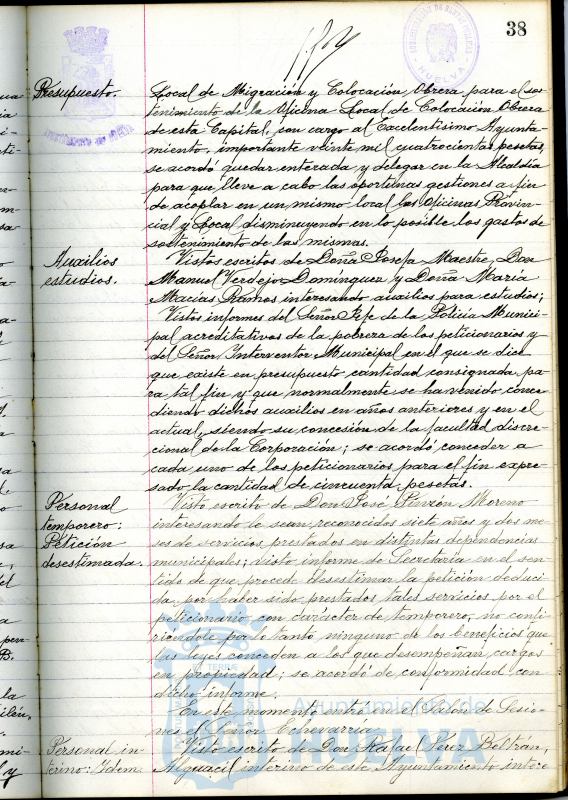 38
Presupuesto.
Local de Migración y Colocación Obrera para el sos-
tenimiento de la Oficina Local de Colocación Obrera
de esta Capital, con cargo al Excelentísimo Ayunta-
miento, importante veinte mil cuatrocientas pesetas,
se acordó quedar enterada y delegar en la Alcaldía
para que lleve a cabo las oportunas gestiones a fin
de acoplar en un mismo local las Oficinas Provin-
cial y Local disminuyendo en lo posible los gastos de
sostenimiento de las mismas.
Auxilios
estudios.
Vistos escritos de Doña Josefa Maestre, Don
Manuel Verdejo Domínguez y Doña María
Macias Ramos interesando auxilios para estudios;
Vistos informes del Señor Jefe de la Policía Munici-
pal acreditativos de la pobreza de los peticionarios y
del Señor Interventor Municipal en el que se dice
que existe en presupuesto cantidad consignada pa-
ra tal fin y que normalmente se ha venido conce-
diendo dichos auxilios en años anteriores y en el
actual, siendo su concesión de la facultad discre-
cional de la Corporación; se acordó conceder a
cada uno de los peticionarios para el fin expre-
sado la cantidad de cincuenta pesetas.
Personal
temporero:
Petición
desestimada.
Visto escrito de Don José Pinzón Moreno
interesando le sean reconocidos siete años y dos me-
ses de servicios prestados en distintas dependencias
municipales; visto informe de Secretaría en el sen-
tido de que procede desestimar la petición deduci-
da por haber sido prestados tales servicios por el
peticionario con carácter de temporero, no confi-
riéndole por lo tanto ninguno de los beneficios que
las leyes conceden a los que desempeñan cargos
en propiedad; se acordó de conformidad con
dicho informe.
En este momento entró en el Salón de Sesio-
nes el Señor Echevarría.
Personal in-
terino: Idem.
Visto escrito de Don Rafael Pérez Beltrán,
Alguacil interino de este Ayuntamiento intere-
Ayuntamiento de
HUELVA